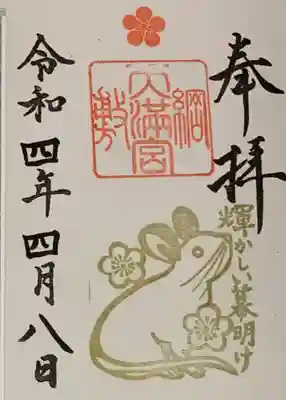 奉拝
輝かしい幕明け
綱
天満宮
敷
令和四年四月八日